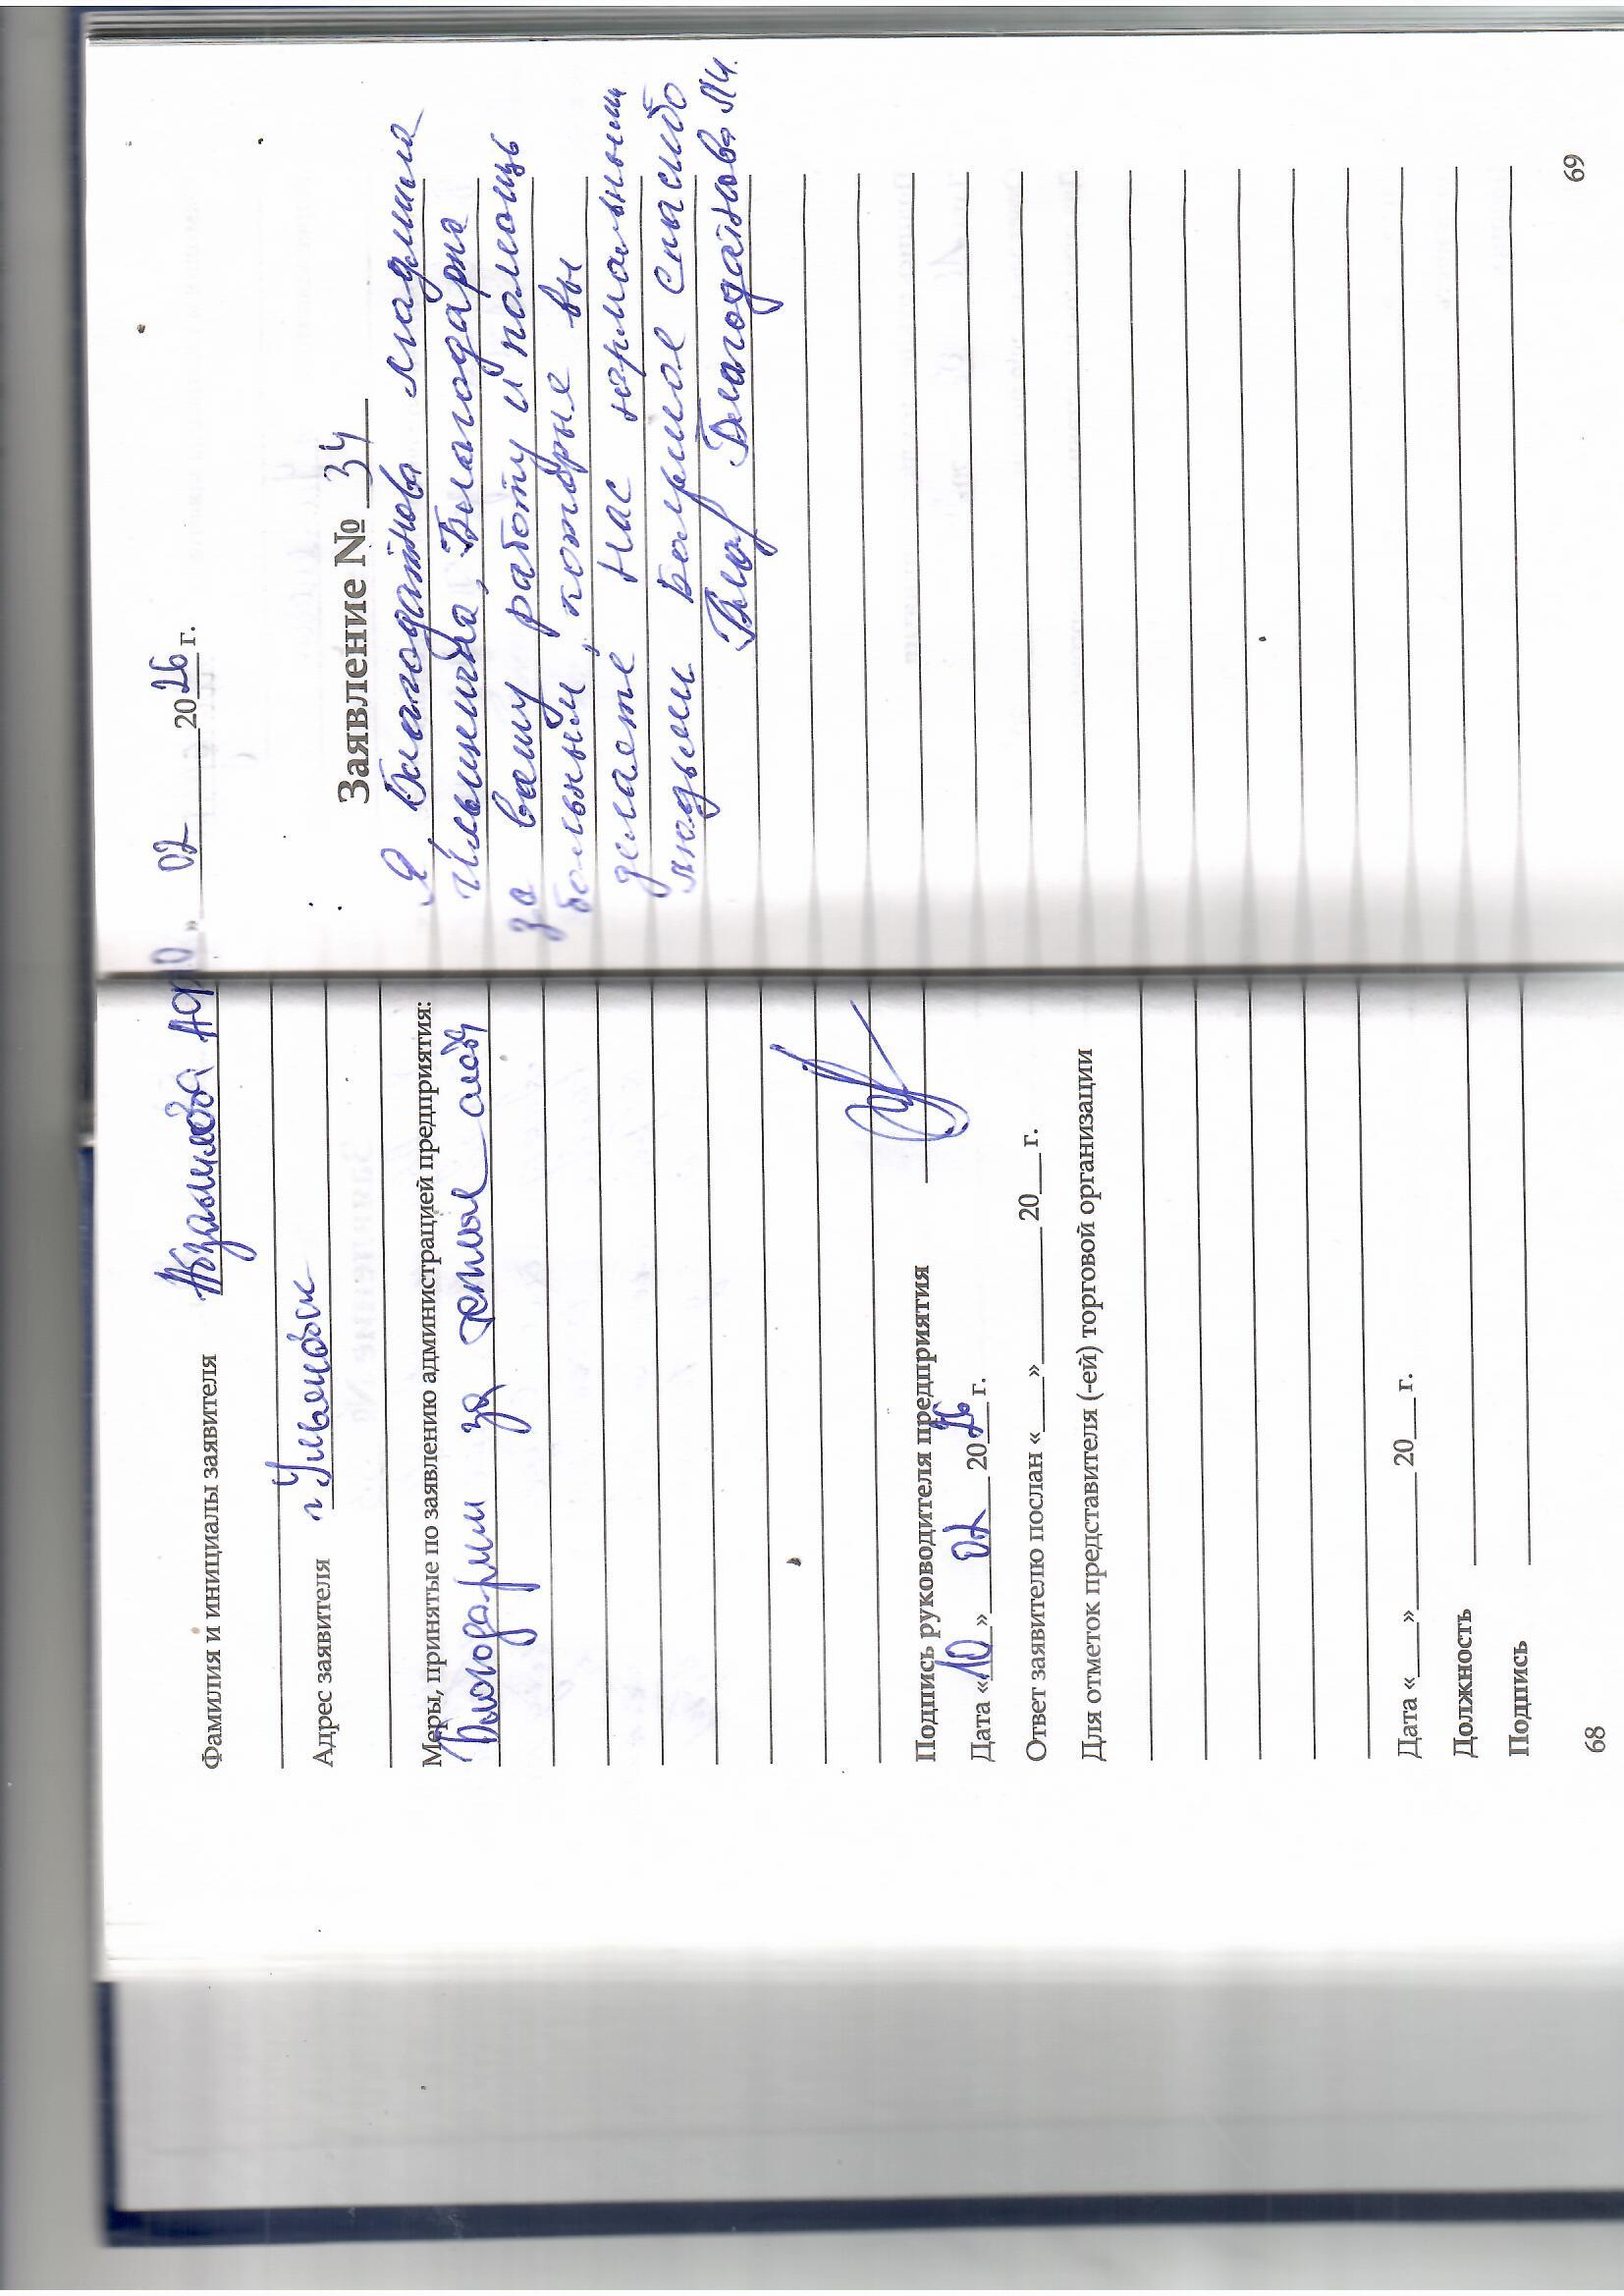 Фамилия и инициалы заявителя Абзалилова
Адрес заявителя г Ульяновск
Меры, принятые по заявлению администрацией предприятия:
Благодарим за теплые слова
Подпись руководителя предприятия
Дата «10» 02 2026 г.
Ответ заявителю послан «___»________20___г.
Для отметок представителя (-ей) торговой организации
Дата «___»________20___г.
Должность
Подпись
68
10 » 02 2026 г.
Заявление № 34
Я Благодатнова Людмила
Ильинична, Благодарна
за вашу работу и помощь
больным, которые вы
делаете Нас нормальными
людьми Большое спасибо
Благ Благодатнова Л.И.
69